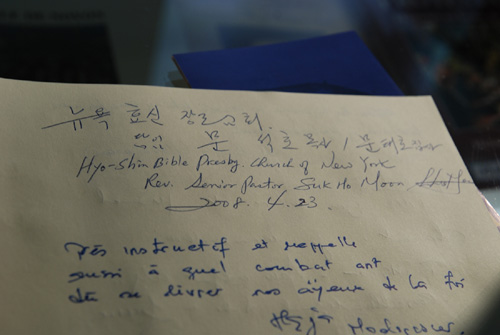 뉴욕 효신 장로교회
문 석호 목사 / 문
Hyo-Shin Bible Presby. Church of New York
Rev. Senior Pastor. Suk Ho Moon
2008. 4. 23.
Très instructif et rappelle
aussi à quel combat ont
dû se livrer nos aïeux de la foi